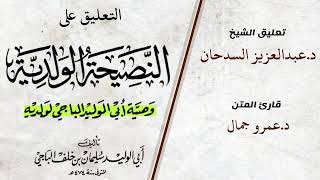 التعليق على
النصيحة الولدية
وصية أبي الوليد الباجي لولديه
تأليف
أبي الوليد سليمان بن خلف الباجي
المتوفى سنة ٤٧٤هـ
تعليق الشيخ
د.عبدالعزيز السدحان
قارئ المتن
د.عمرو جمال